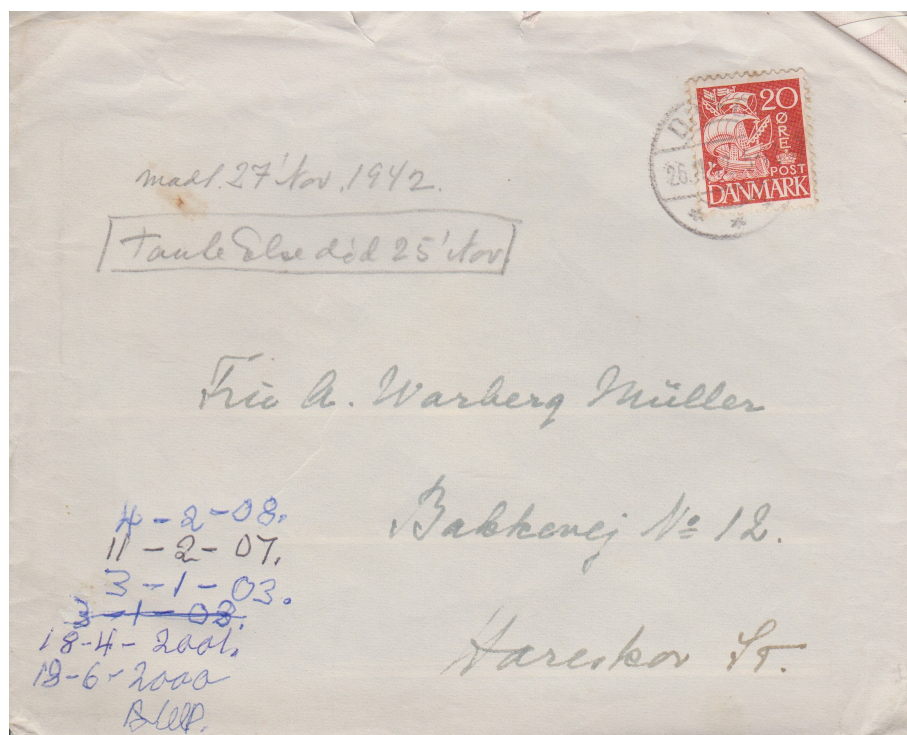 20
ØRE
POST
DANMARK
D
26.
modt. 27' Nov. 1942.
Tante Else død 25' Nov.
Fru A. Warberg Müller
Bakkevej No 12.
Hareskov St.
4-2-08.
11-2-07.
3-1-03.
3-1-03.
18-4-2001.
18-6-2000